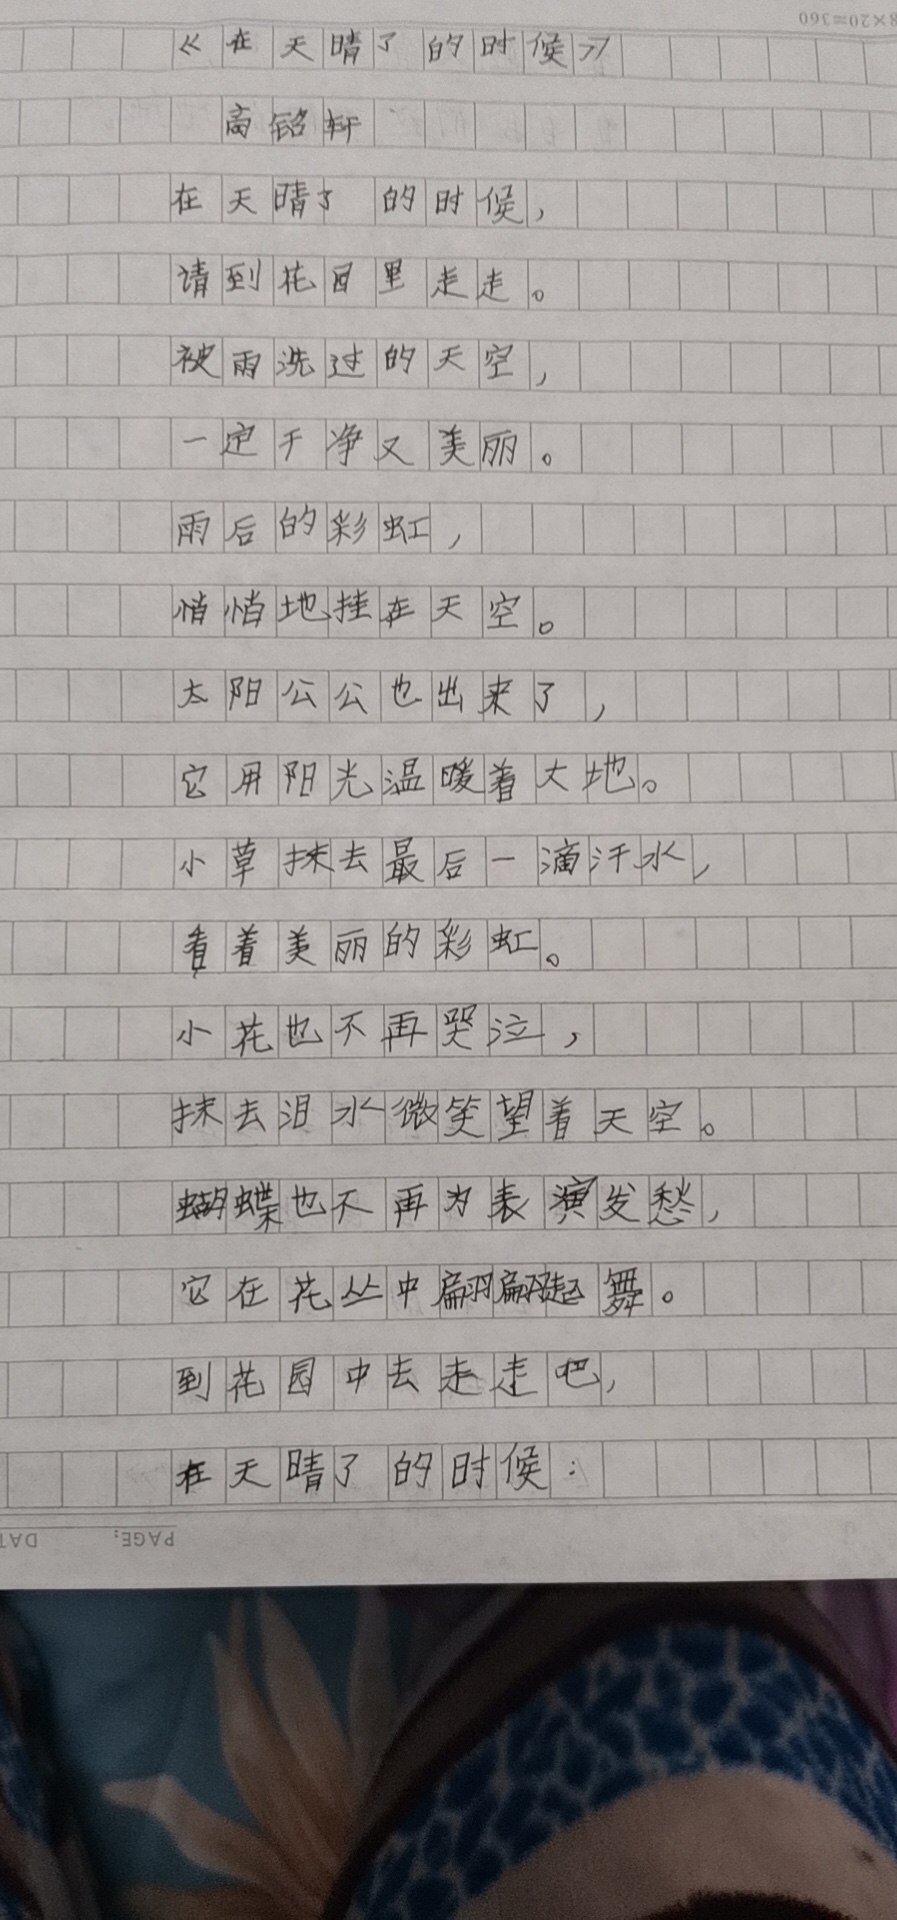 8×20=360
《在天晴了的时候》
高铭轩
在天晴了的时候，
请到花园里走走。
被雨洗过的天空，
一定干净又美丽。
雨后的彩虹，
悄悄地挂在天空。
太阳公公也出来了，
它用阳光温暖着大地。
小草抹去最后一滴汗水，
看着美丽的彩虹。
小花也不再哭泣，
抹去泪水微笑望着天空。
蝴蝶也不再为表演发愁，
它在花丛中翩翩起舞。
到花园中去走走吧，
在天晴了的时候：
PAGE: DAT